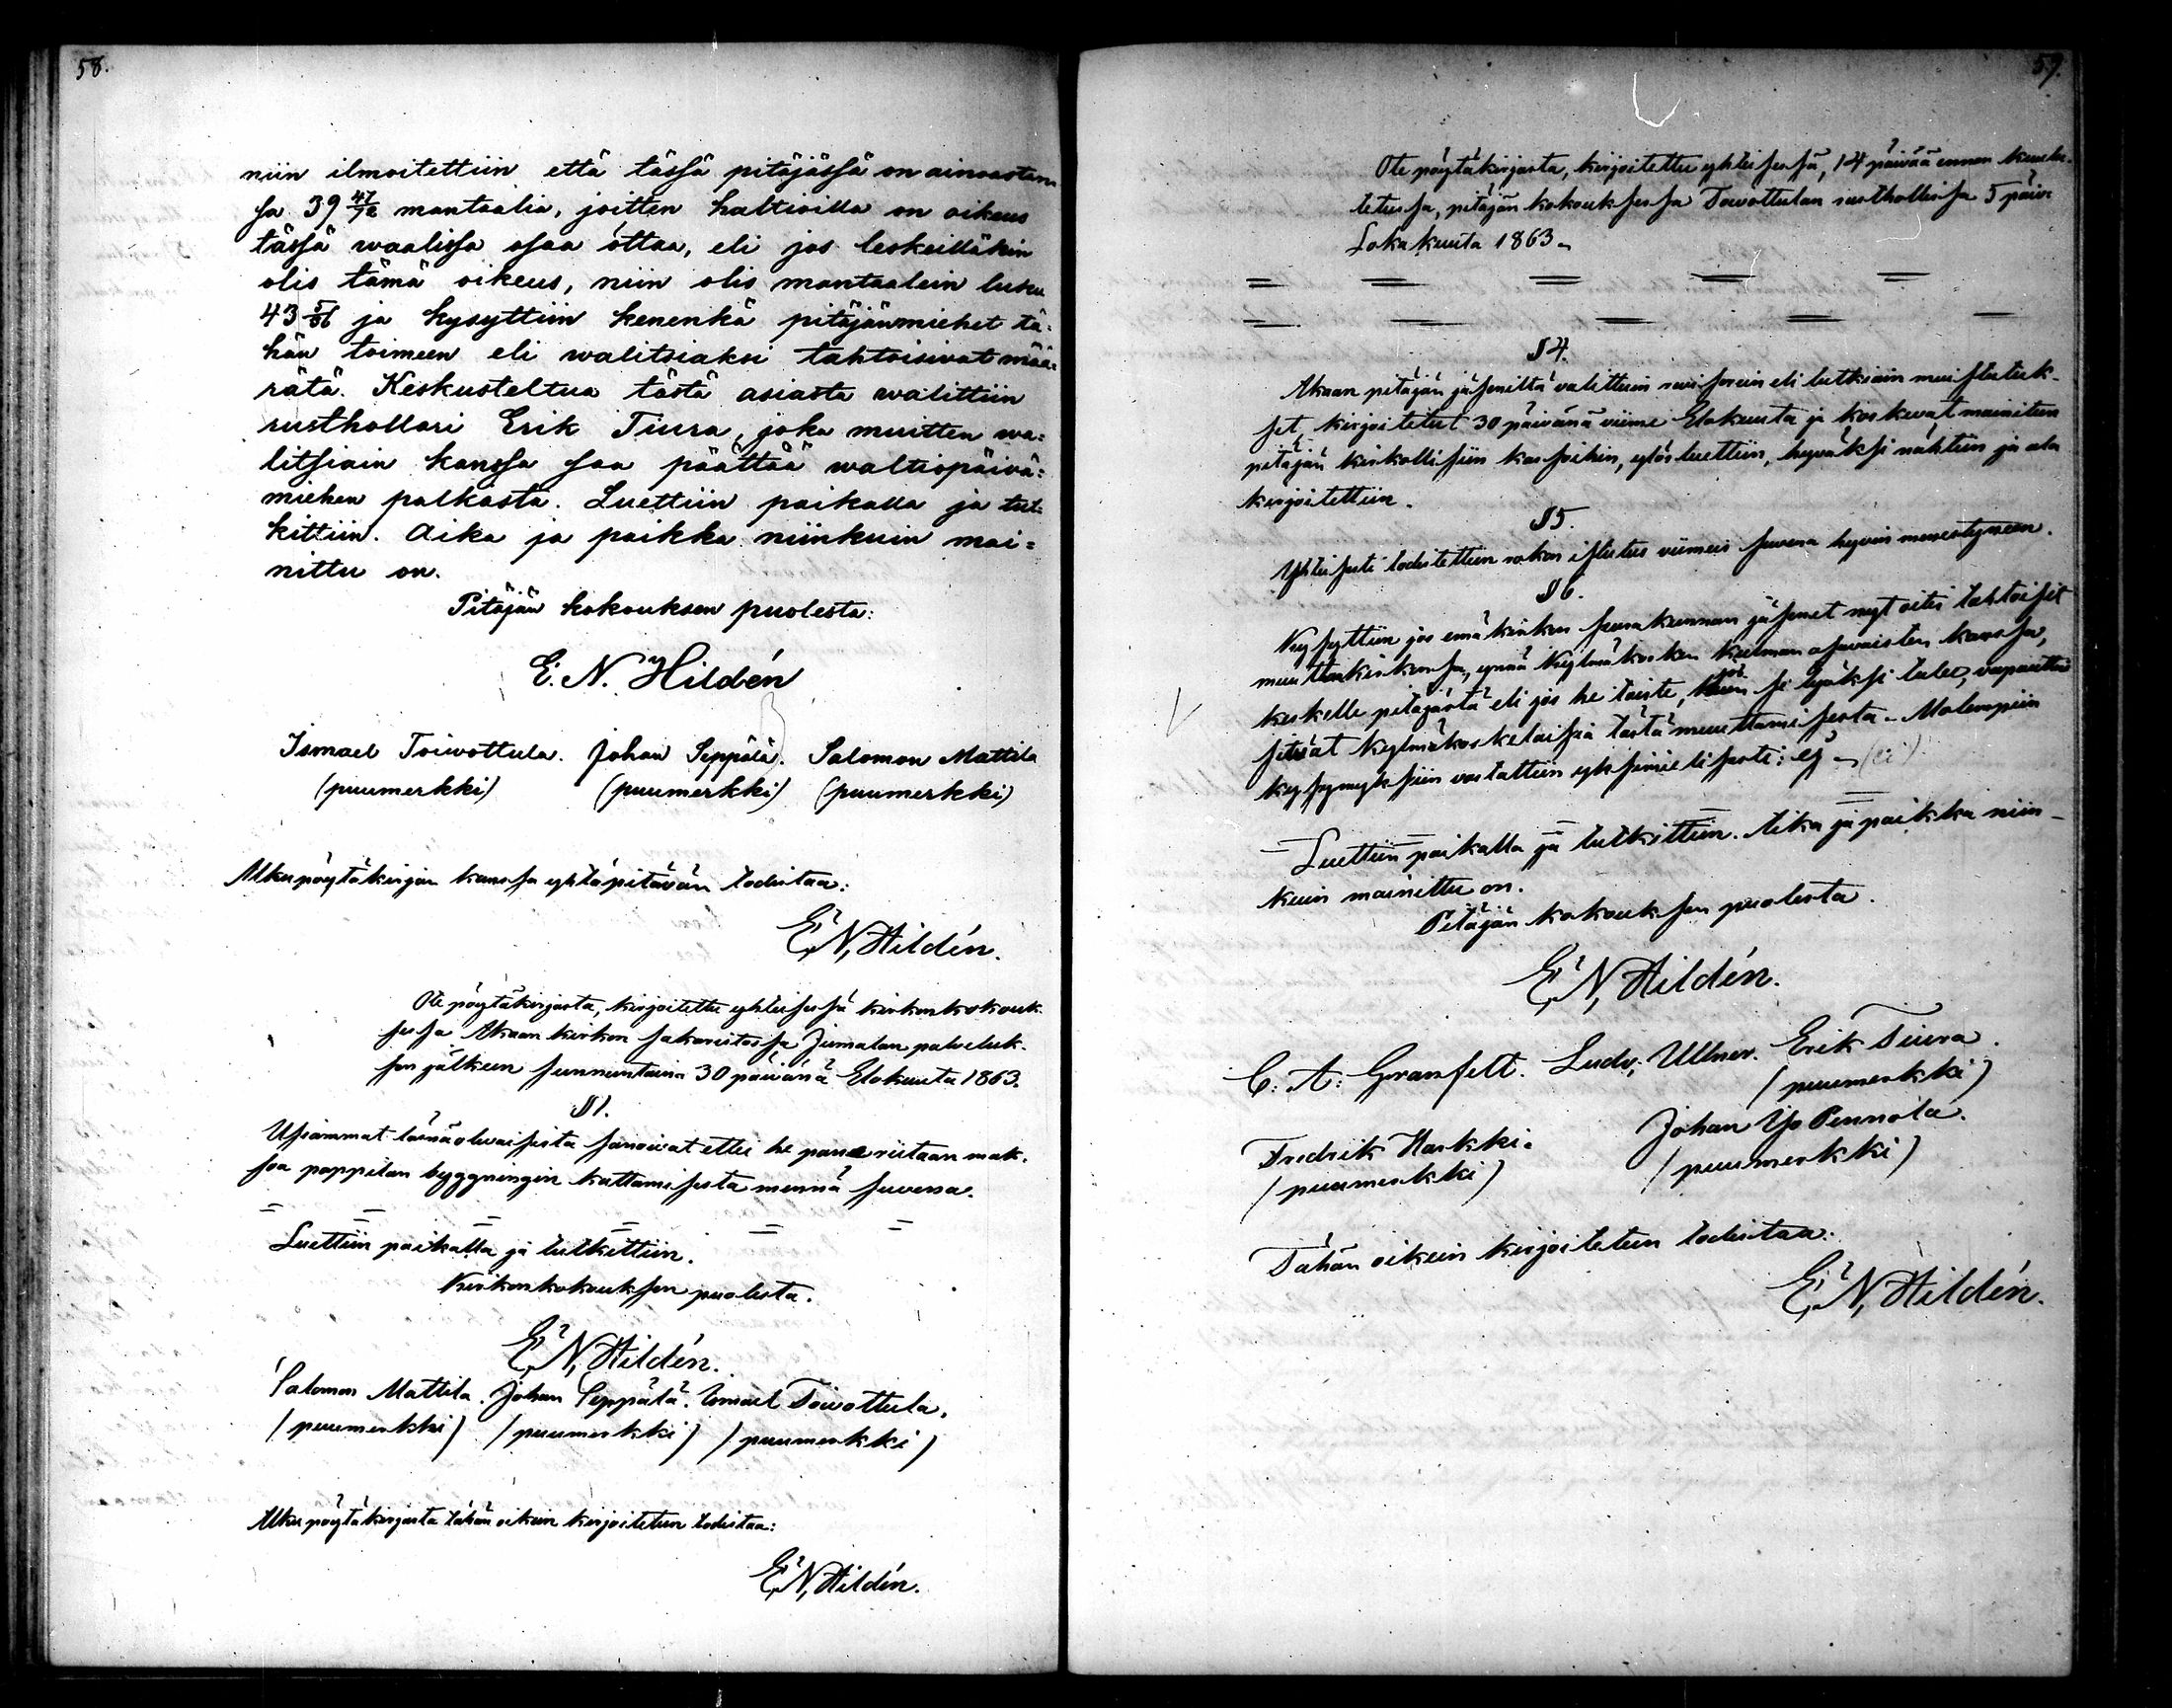 58.
niin ilmoitettiin että tässä pitäjässä on ainoastan-
sa 39 47/72 mantaalia, joitten haltioilla on oikeus
tässä waalissa osaa ottaa, eli jos leskeilläkin
olis tämä oikeus, niin olis mantaalein luku
43 5/36 ja kysyttiin kenenkä pitäjänmiehet tä-
hän toimeen eli walitsiaksi tahtoisivat mää-
rätä. Keskusteltua tästä asiasta walittiin
rusthollari Erik Tiura, joka muitten wa-
litsiain kanssa saa päättää waltiopäivä-
miehen palkasta. Luettiin paikalla ja tut-
kittiin. Aika ja paikka niinkuin mai-
nittu on.
Pitäjän kokouksen puolesta:
E. N. Hildén
Ismael Toiwottula. Johan Seppälä. Salomon Mattila
(puumerkki) (puumerkki) (puumerkki)
Alkupöytäkirjan kanssa yhtäpitävän todistaa:
E. N. Hildén.
Ote pöytäkirjasta, kirjoitettu yhteisessä kirkonkokouk-
sessa Akaan kirkon sakaristossa Jumalan palveluk-
sen jälkeen sunnuntaina 30 päivänä Elokuuta 1863.
§ 1.
Usiammat läsnäolevaisista sanoivat ettei he pane riitaan mak-
soa pappilan byggningin kattamisesta mennä suvena.
Luettiin paikalla ja tutkittiin.
Kirkonkokouksen puolesta.
E. N. Hildén.
Salomon Mattila. Johan Seppälä. Ismael Toivottula.
(puumerkki) (puumerkki) (puumerkki)
Alkupöytäkirjasta tähän oikein kirjoitetun todistaa:
E. N. Hildén.
59.
Ote pöytäkirjasta, kirjoitettu yhteisessä, 14 päivää ennen kuulu-
tetussa, pitäjän kokouksessa Toivottulan rusthollissa 5 päiv.
Lokakuuta 1863.
§ 4.
Akaan pitäjän jäseniltä valittuin revisorein eli tutkiain muistutuk-
set, kirjoitetut 30 päivänä viime Elokuuta ja koskevat mainitun
pitäjän kirkollisiin kassoihin, ylösluettiin, hyväksi nähtiin ja ala
kirjoitettiin.
§ 5.
Yhteisesti todistettiin rokon istutus viimeis suvena hyvin menestyneen.
§ 6.
Kysyttiin jos emäkirkon seurakunnan jäsenet nyt oitis tahtoisit
muuttaa kirkonsa, ynnä Kylmäkosken kulman asuvaisten kanssa,
keskelle pitäjästä eli jos he taiste, jos se lyäksi tulee, vapautta
sitwät Kylmäkoskelaisia tästä muuttamisesta. Molempiin
kysymyksiin vastattiin yksimielisesti: ej (ei)
Luettiin paikalla ja tutkittiin. Aika ja paikka niin-
kuin mainittu on.
Pitäjän kokouksen puolesta.
E. N. Hildén.
C. A. Granfelt. Ludv. Ullner. Erik Tiura.
(puumerkki)
Fredrik Harkki. Johan Yso Pennola.
(puumerkki) (puumerkki)
Tähän oikein kirjoitetun todistaa:
E. N. Hildén.